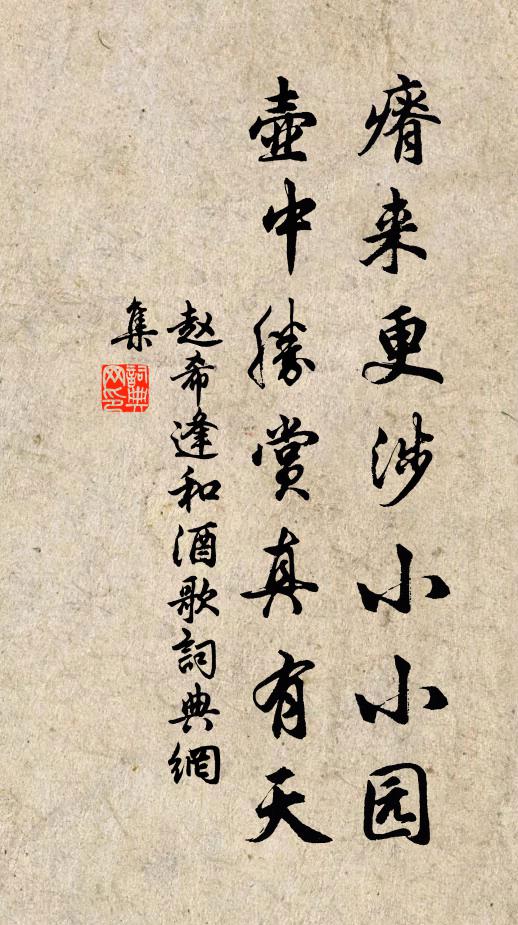 瘠来更涉小小园
壺中勝賞真有天
赵希逢和酒歌詞典網
集
詞典
网印